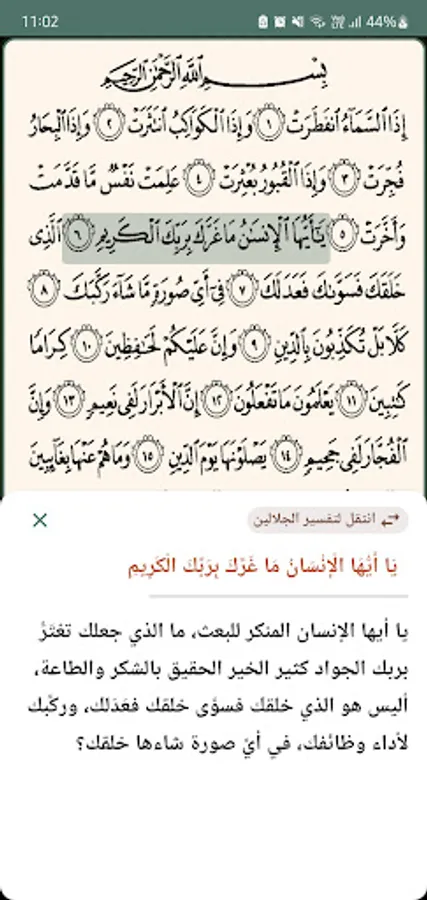 11:02 44%
بِسْمِ اللَّهِ الرَّحْمَٰنِ الرَّحِيمِ
إِذَا السَّمَاءُ انفَطَرَتْ ١ وَإِذَا الْكَوَاكِبُ انتَثَرَتْ ٢ وَإِذَا الْبِحَارُ
فُجِّرَتْ ٣ وَإِذَا الْقُبُورُ بُعْثِرَتْ ٤ عَلِمَتْ نَفْسٌ مَّا قَدَّمَتْ
وَأَخَّرَتْ ٥ يَٰٓأَيُّهَا الْإِنسَٰنُ مَا غَرَّكَ بِرَبِّكَ الْكَرِيمِ ٦ الَّذِي
خَلَقَكَ فَسَوَّىٰكَ فَعَدَلَكَ ٧ فِيٓ أَيِّ صُورَةٍ مَّا شَآءَ رَكَّبَكَ ٨
كَلَّا بَلْ تُكَذِّبُونَ بِالدِّينِ ٩ وَإِنَّ عَلَيْكُمْ لَحَٰفِظِينَ ١٠ كِرَامًا
كَٰتِبِينَ ١١ يَعْلَمُونَ مَا تَفْعَلُونَ ١٢ إِنَّ الْأَبْرَارَ لَفِي نَعِيمٍ ١٣ وَإِنَّ
الْفُجَّارَ لَفِي جَحِيمٍ ١٤ يَصْلَوْنَهَا يَوْمَ الدِّينِ ١٥ وَمَا هُمْ عَنْهَا بِغَآئِبِينَ
انتقل لتفسير الجلالين
يَا أَيُّهَا الْإِنْسَانُ مَا غَرَّكَ بِرَبِّكَ الْكَرِيمِ
يا أيها الإنسان المنكر للبعث، ما الذي جعلك تغتَرُّ
بربك الجواد كثير الخير الحقيق بالشكر والطاعة،
أليس هو الذي خلقك فسوَّى خلقك فعَدَلك، وركَّبك
لأداء وظائفك، في أيِّ صورة شاءها خلقك؟